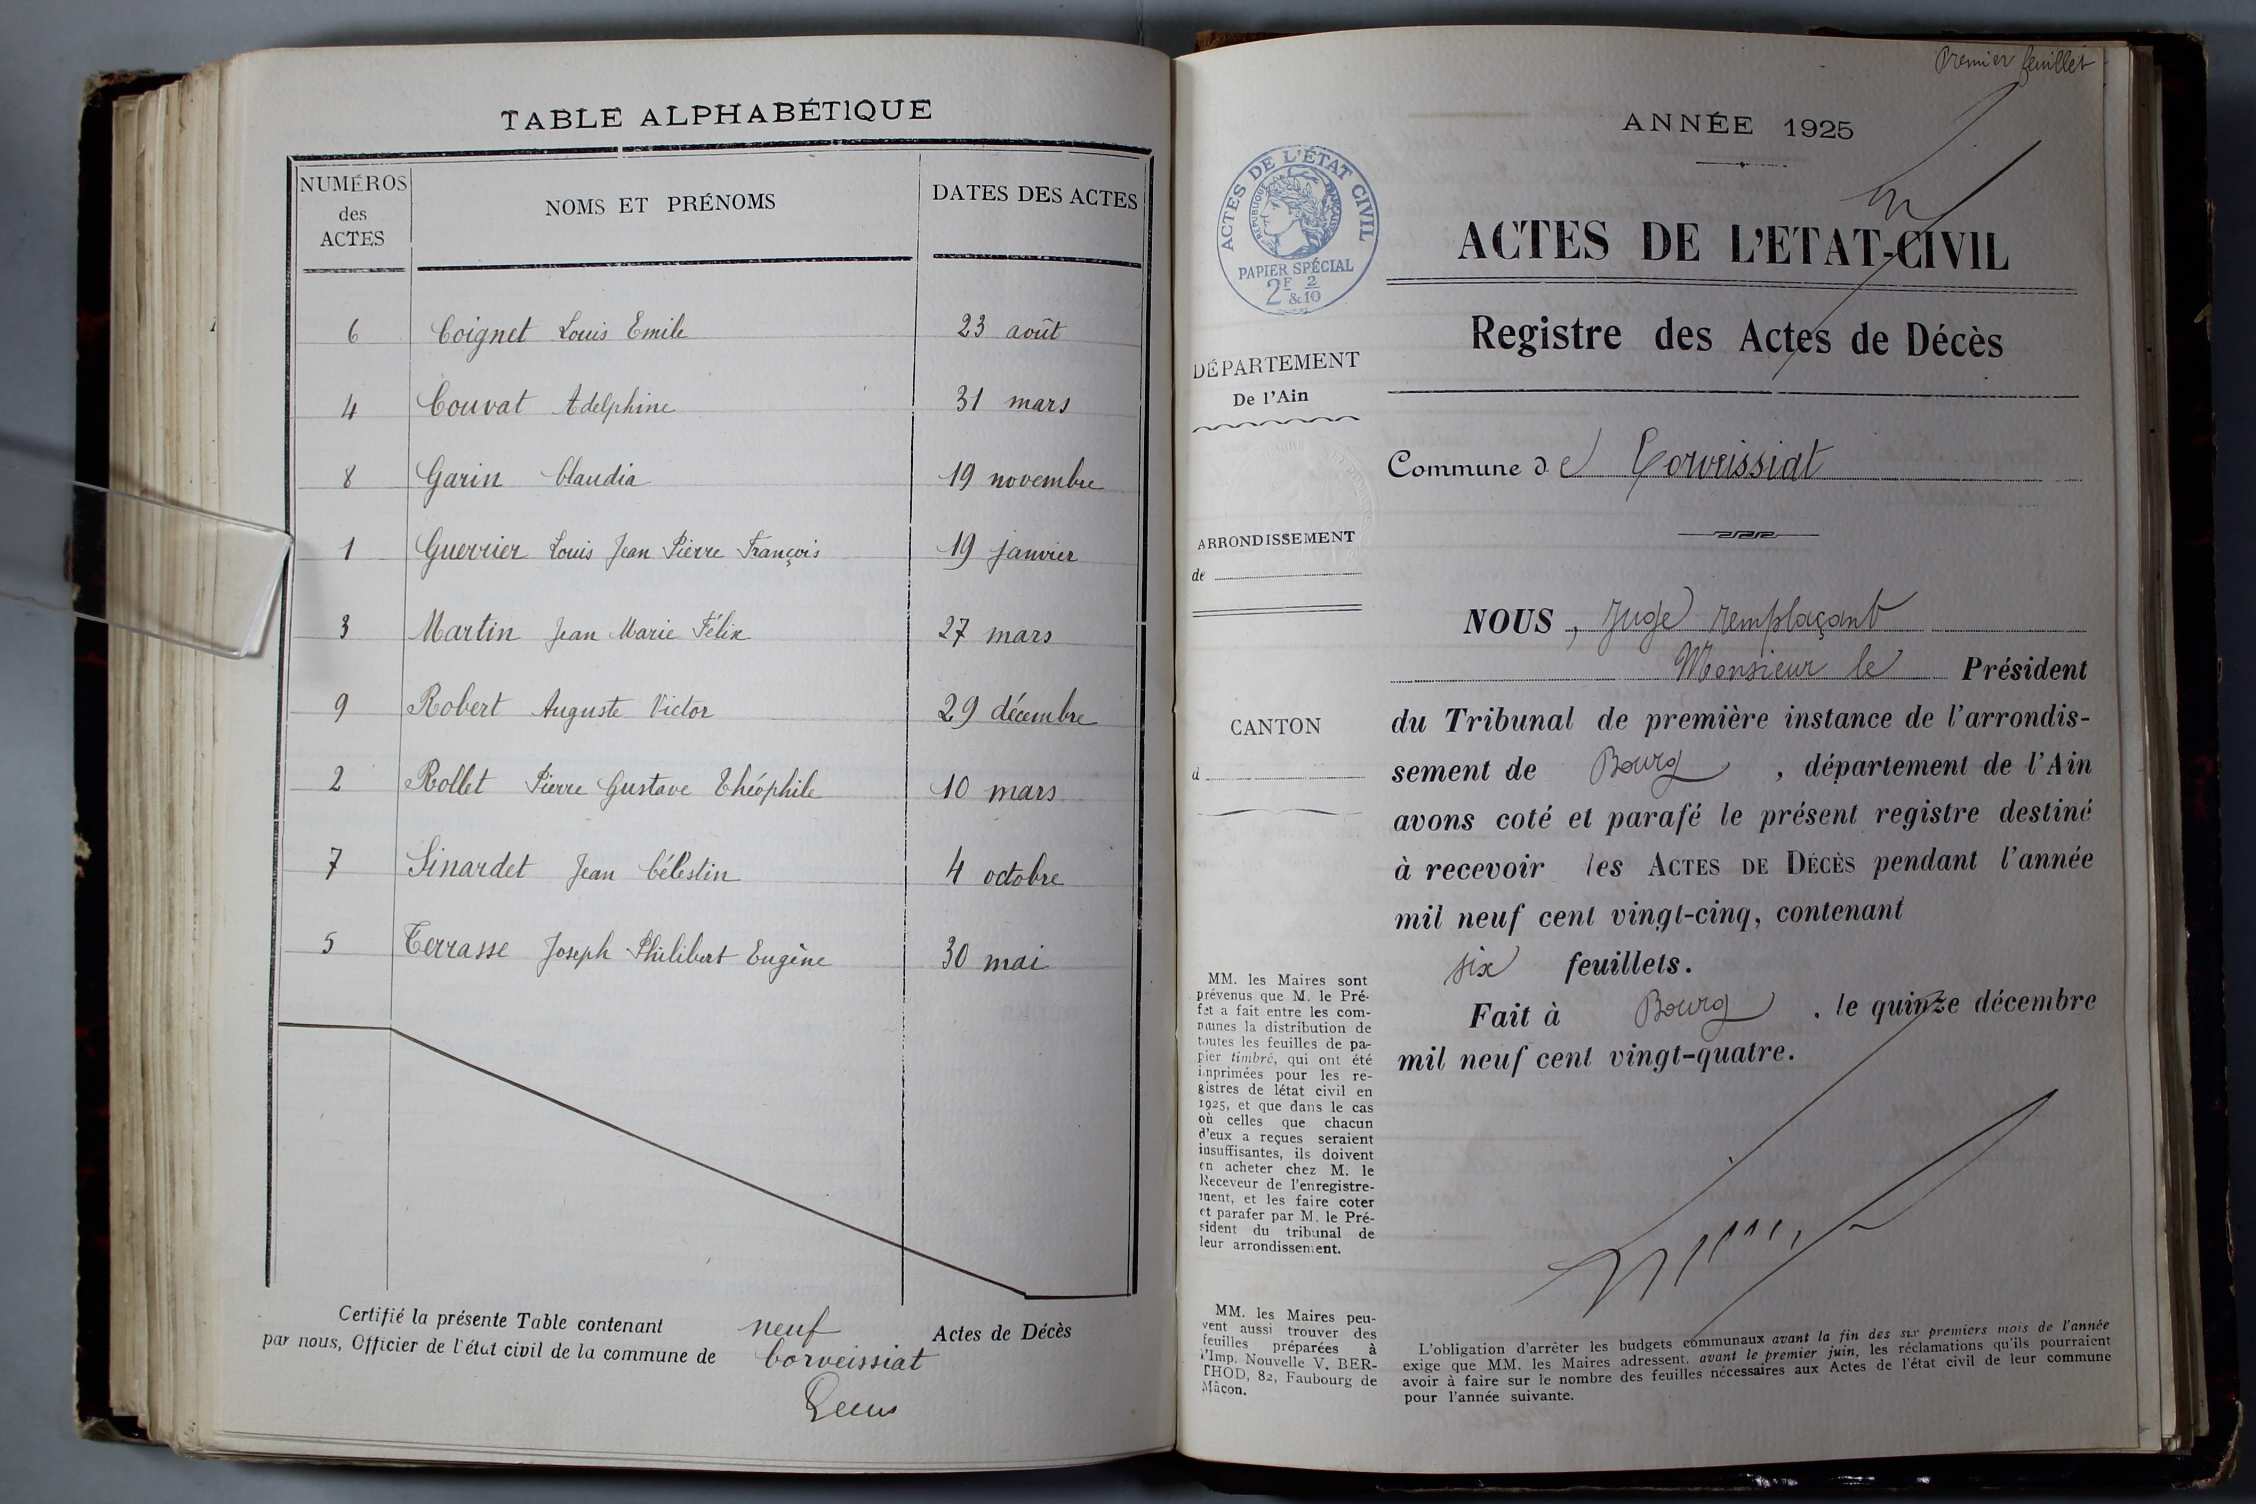 TABLE ALPHABÉTIQUE
NUMÉROS des ACTES NOMS ET PRÉNOMS DATES DES ACTES
6 Coignet Louis Emile 23 août
4 Couvat Adelphine 31 mars
8 Garin Claudia 19 novembre
1 Guerrier Louis Jean Pierre François 19 janvier
3 Martin Jean Marie Félix 27 mars
9 Robert Auguste Victor 29 décembre
2 Rollet Pierre Gustave Théophile 10 mars
7 Sinardet Jean Célestin 4 octobre
5 Terrasse Joseph Philibert Eugène 30 mai
Certifié la présente Table contenant neuf Actes de Décès
par nous, Officier de l'état civil de la commune de Corveissiat
Premier feuillet
ANNÉE 1925
ACTES DE L'ÉTAT CIVIL
RÉPUBLIQUE FRANÇAISE
PAPIER SPÉCIAL
2F & 2/10
ACTES DE L'ETAT-CIVIL
Registre des Actes de Décès
DÉPARTEMENT
De l'Ain
Commune de Corveissiat
ARRONDISSEMENT
de
CANTON
d
NOUS, Juge remplaçant
Monsieur le Président
du Tribunal de première instance de l'arrondis-
sement de Bourg, département de l'Ain
avons coté et parafé le présent registre destiné
à recevoir les ACTES DE DÉCÈS pendant l'année
mil neuf cent vingt-cinq, contenant
six feuillets.
Fait à Bourg, le quinze décembre
mil neuf cent vingt-quatre.
MM. les Maires sont
prévenus que M. le Pré-
fet a fait entre les com-
munes la distribution de
toutes les feuilles de pa-
pier timbré, qui ont été
imprimées pour les re-
gistres de létat civil en
1925, et que dans le cas
où celles que chacun
d'eux a reçues seraient
insuffisantes, ils doivent
en acheter chez M. le
Receveur de l'enregistre-
ment, et les faire coter
et parafer par M. le Pré-
sident du tribunal de
leur arrondissement.
MM. les Maires peu-
vent aussi trouver des
feuilles préparées à
l'Imp. Nouvelle V. BER-
THOD, 82, Faubourg de
Mâcon.
L'obligation d'arrêter les budgets communaux avant la fin des six premiers mois de l'année
exige que MM. les Maires adressent, avant le premier juin, les réclamations qu'ils pourraient
avoir à faire sur le nombre des feuilles nécessaires aux Actes de l'état civil de leur commune
pour l'année suivante.